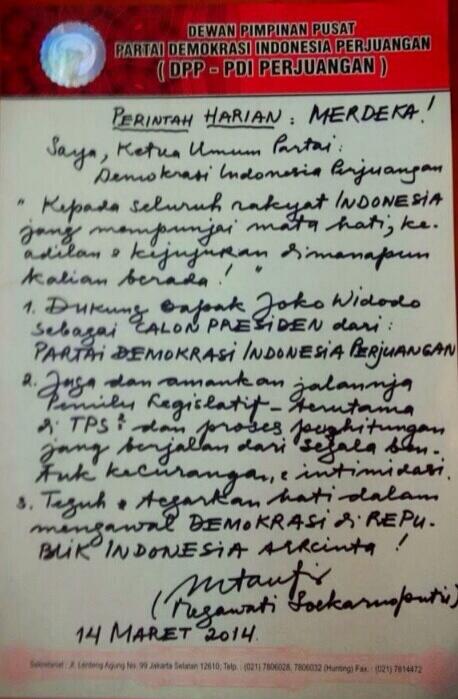 DEWAN PIMPINAN PUSAT
PARTAI DEMOKRASI INDONESIA PERJUANGAN
( DPP - PDI PERJUANGAN )
PERINTAH HARIAN : MERDEKA !
Saya, Ketua Umum Partai :
Demokrasi Indonesia Perjuangan
" Kepada seluruh rakyat INDONESIA
jang mempunjai mata hati, ke-
adilan & kejujuran dimanapun
kalian berada ! "
1. Dukung Bapak Joko Widodo
sebagai CALON PRESIDEN dari :
PARTAI DEMOKRASI INDONESIA PERJUANGAN
2. Jaga dan amankan jalannja
Pemilu Legislatif - terutama
di TPS² dan proses penghitungan
jang berjalan dari segala ben-
tuk kecurangan, & intimidasi.
3. Teguh & tegarkan hati dalam
mengawal DEMOKRASI di REPU-
BLIK INDONESIA tercinta !
( Megawati Soekarnoputri )
14 MARET 2014.
Sekretariat : Jl. Lenteng Agung No. 99 Jakarta Selatan 12610; Telp. : (021) 7806028, 7806032 (Hunting) Fax. : (021) 7814472